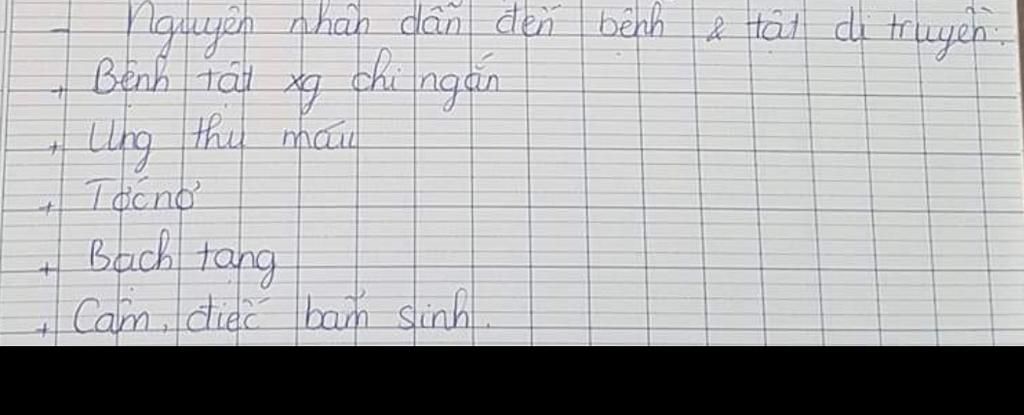 - Nguyên nhân dẫn đến bệnh & tật di truyền:
+ Bệnh tật xg chi ngắn
+ Ung thư máu
+ Tớcnơ
+ Bạch tạng
+ Câm, điếc bẩm sinh.